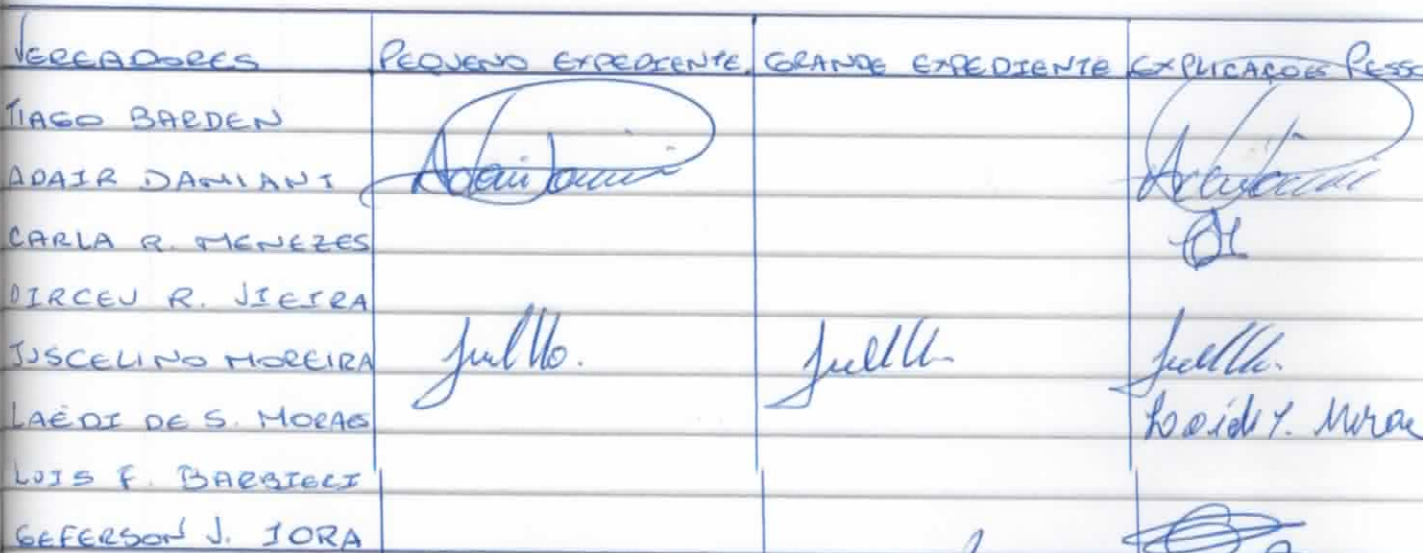 VEREADORES PEQUENO EXPEDIENTE GRANDE EXPEDIENTE EXPLICAÇÕES PESSO
TIAGO BARDEN
ADAIR DAMIANI
CARLA R. MENEZES
DIRCEU R. VIEIRA
JUSCELINO MOREIRA
LAÉDI DE S. MORAES
LUIS F. BARBIERI
GEFERSON J. IORA